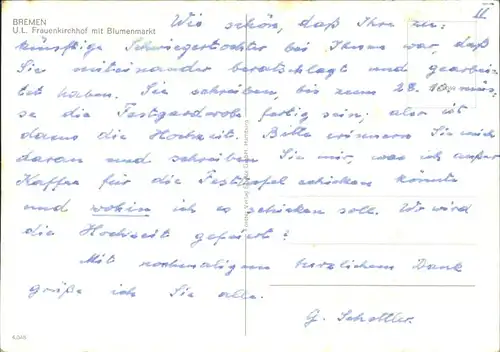 II
BREMEN
U.L. Frauenkirchhof mit Blumenmarkt
Wie schön, daß Ihre zu=
künftige Schwiegertochter bei Ihnen war, daß
Sie miteinander beratschlagt und gearbei=
tet haben. Sie schreiben, bis zum 28. 10. müs=
se die Festgarderobe fertig sein; also ist
dann die Hochzeit. Bitte erinnern Sie mich
daran und schreiben Sie mir, was ich außer
Kaffee für die Festtafel schicken könnte
und wohin ich es schicken soll. Wo wird
die Hochzeit gefeiert?
Mit nochmaligem herzlichem Dank
grüße ich Sie alle.
G. Schottler.
Verlag Hamburg